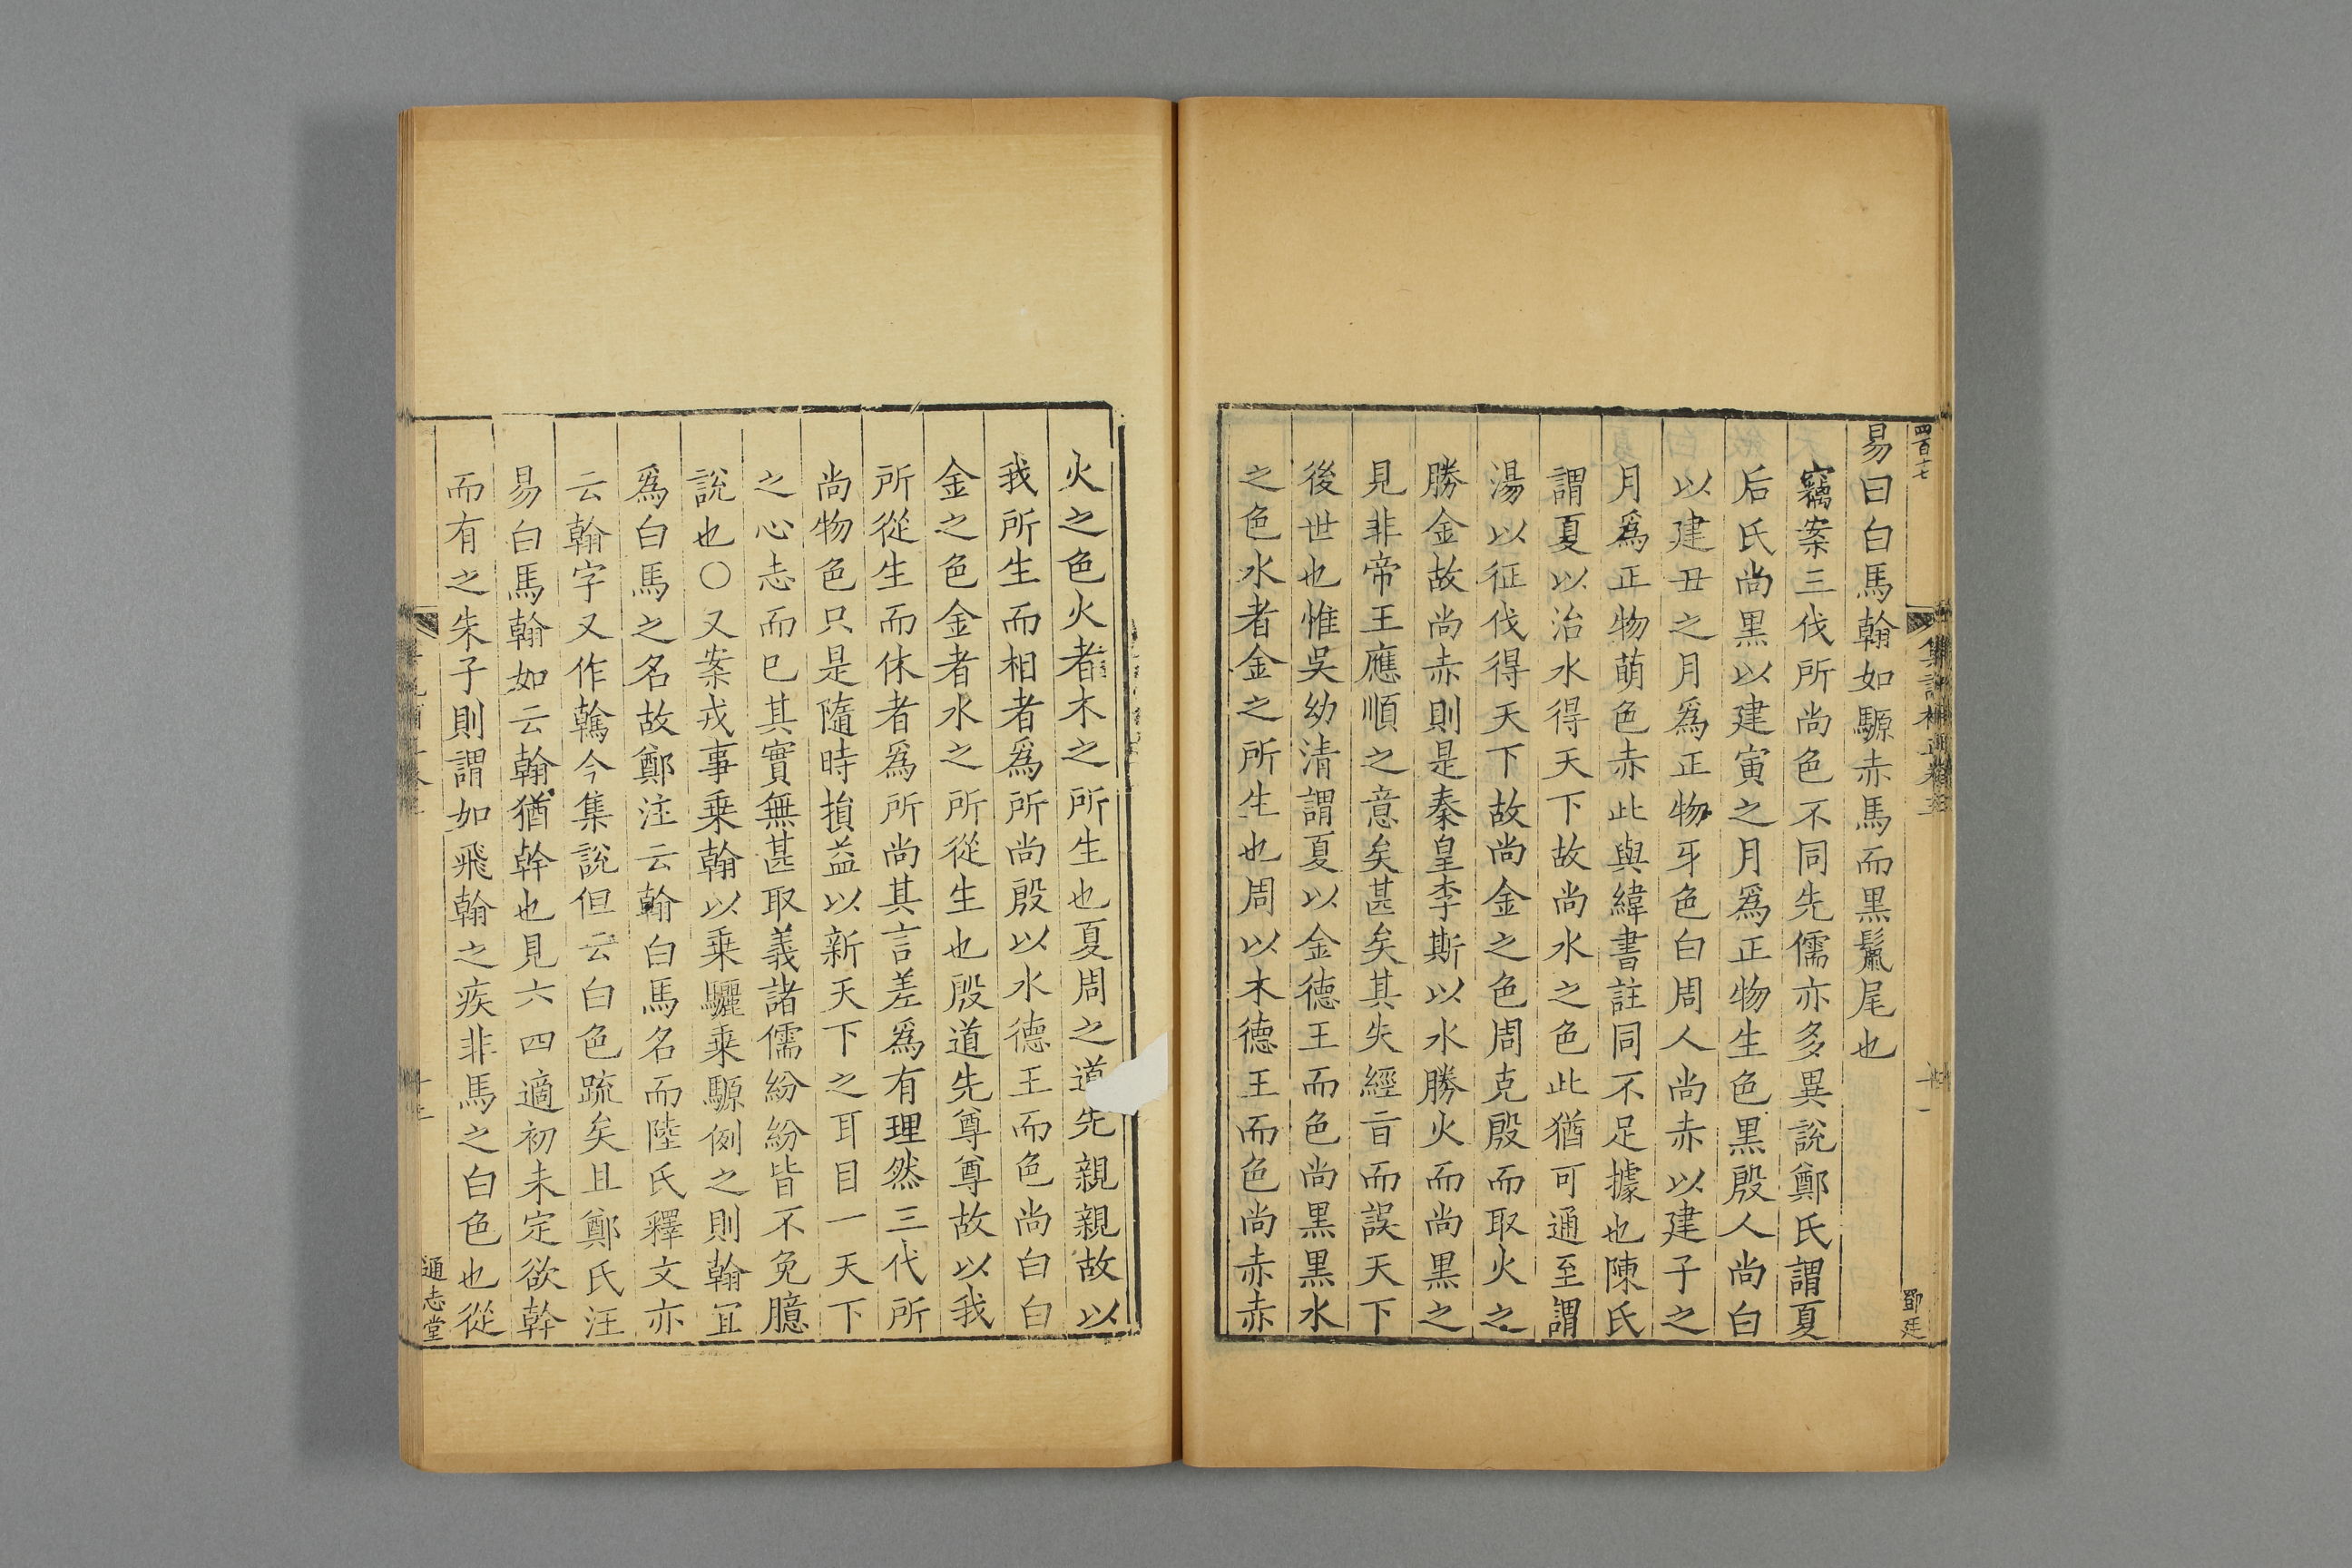 四百十七
集說補正卷三
十一
鄧廷
易曰白馬翰如騵赤馬而黑鬛尾也
竊案三代所尚色不同先儒亦多異說鄭氏謂夏
后氏尚黑以建寅之月爲正物生色黑殷人尚白
以建丑之月爲正物牙色白周人尚赤以建子之
月爲正物萌色赤此與緯書註同不足據也陳氏
謂夏以治水得天下故尚水之色此猶可通至謂
湯以征伐得天下故尚金之色周克殷而取火之
勝金故尚赤則是秦皇李斯以水勝火而尚黑之
見非帝王應順之意矣甚矣其失經旨而誤天下
後世也惟吳幼清謂夏以金德王而色尚黑黑水
之色水者金之所生也周以木德王而色尚赤赤
火之色火者木之所生也夏周之道先親親故以
我所生而相者爲所尚殷以水德王而色尚白白
金之色金者水之所從生也殷道先尊尊故以我
所從生而休者爲所尚其言差爲有理然三代所
尚物色只是隨時損益以新天下之耳目一天下
之心志而已其實無甚取義諸儒紛紛皆不免臆
說也○又案戎事乘翰以乘驪乘騵例之則翰宜
爲白馬之名故鄭注云翰白馬名而陸氏釋文亦
云翰字又作鶾今集說但云白色疏矣且鄭氏注
易白馬翰如云翰猶幹也見六四適初未定欲幹
而有之朱子則謂如飛翰之疾非馬之白色也從
通志堂